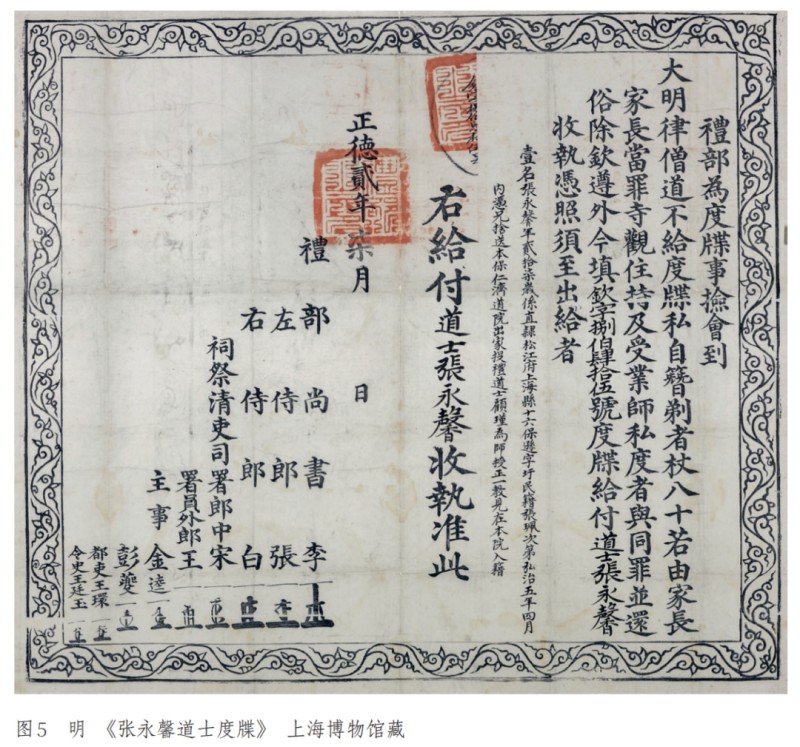 禮部為度牒事撿會到
大明律僧道不給度牒私自簪剃者杖八十若由家長
家長當罪寺觀住持及受業師私度者與同罪並還
俗除欽遵外今填欽字捌伯肆拾伍號度牒給付道士張永馨
收執憑照須至出給者
壹名張永馨年貳拾柒歲係直隸松江府上海縣十六保遜字圩民籍張珮次第弘治五年四月
內憑兄捨送本保仁濟道院出家授禮道士顧瑾為師授正一教見在本院入籍
右給付道士張永馨收執准此
正德貳年柒月 日
禮部尚書李
左侍郎張
右侍郎白
祠祭清吏司署郎中宋
署員外郎王
主事金逵
彭夔
都吏王環
令史王廷玉
图5 明 《张永馨道士度牒》 上海博物馆藏